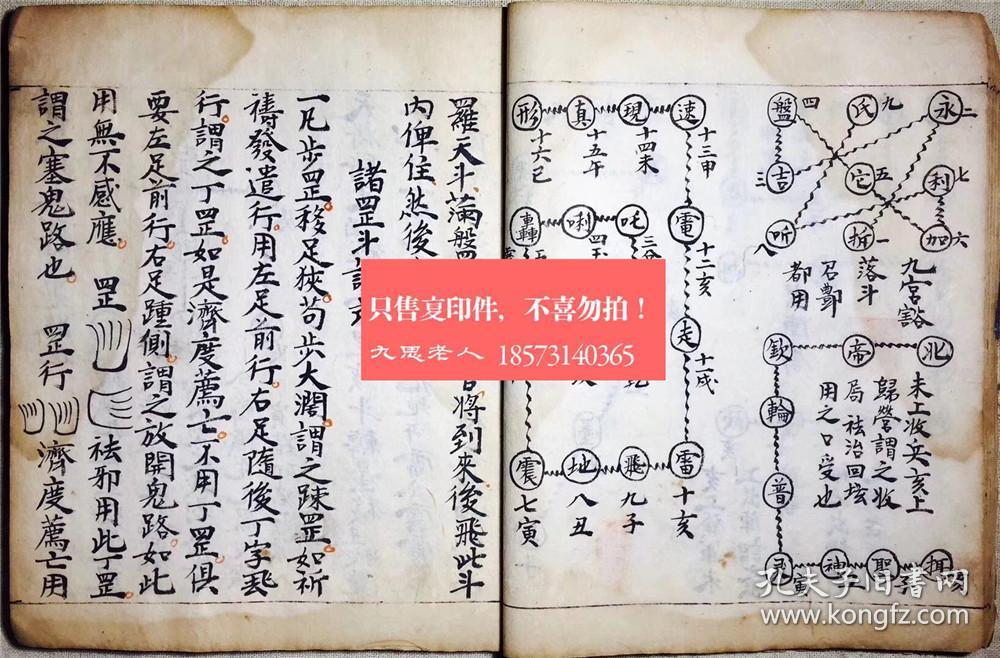 永二
利七
加六
氏九
它五
折一
盤四
吉三
听八
九宮豁
落斗
召酆
都用
北
帝
欽
輪
普
神
聖
未上收兵亥上
歸營謂之收
局祛治回壇
用之口受也
速十三申
現十四未
真十五午
形十六巳
電十二亥
走十一戌
雷十亥
飛九子
地八丑
震七寅
吒
唎
轟
羅天斗滿盤
將到來後飛此斗
內俾住然後
諸罡斗訣
一凡步罡移足狹苟步大濶謂之踈罡如祈
禱發遣行用左足前行右足隨後丁字
行謂之丁罡如是濟度薦亡不用丁罡俱
要左足前行右足踵側謂之放開鬼路如此
用無不感應 罡 祛邪用此丁罡
謂之塞鬼路也 罡行 濟度薦亡用
只售复印件，不喜勿拍！
九思老人 18573140365
孔夫子旧书网
www.kongfz.com